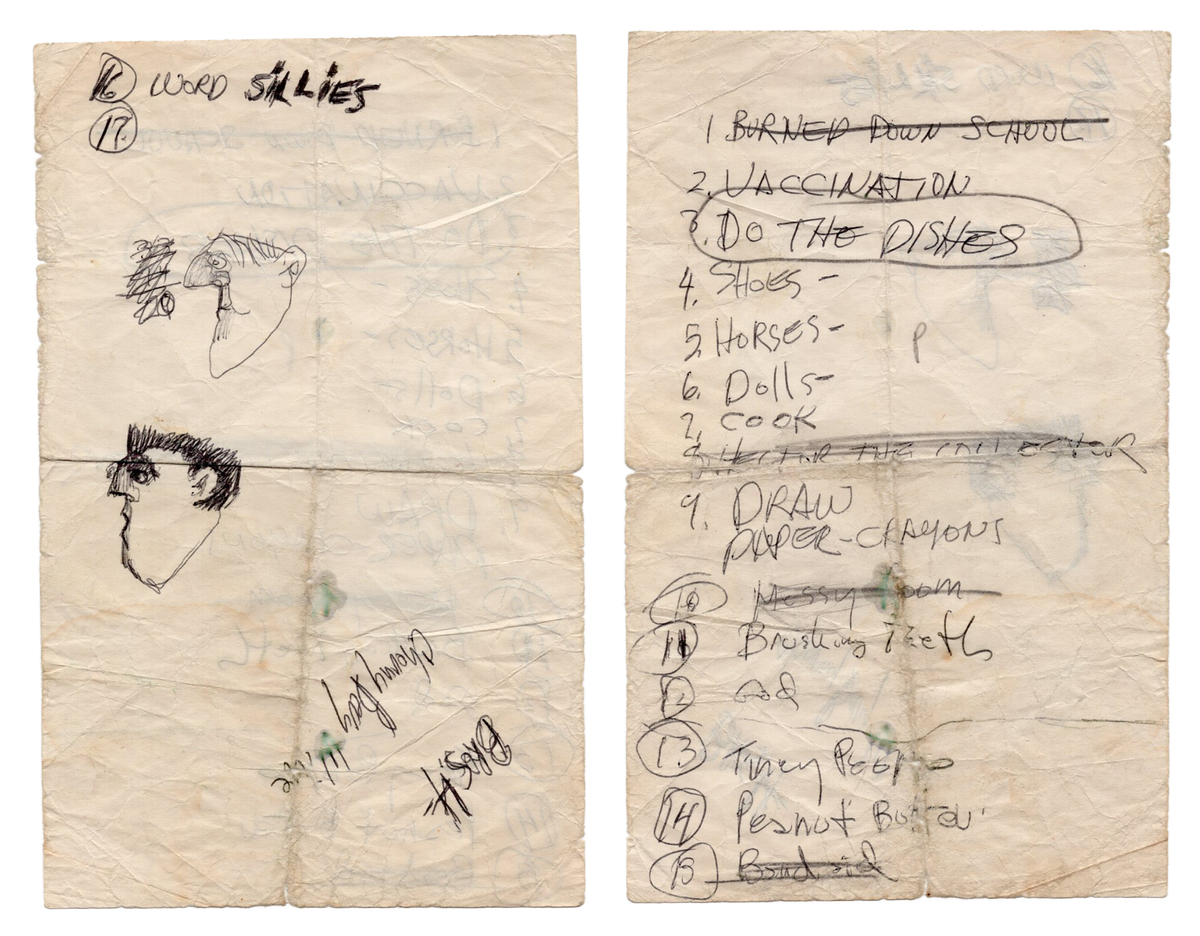 16 WORD SILLIES
17.
1 BURNED DOWN SCHOOL
2. VACCINATION
3. DO THE DISHES
4. SHOES -
5. HORSES -
P
6. Dolls -
7. COOK
8. HECTOR THE COLLECTOR
9. DRAW
PAPER-CRAYONS
10 Messy Room
11 Brushing Teeth
12 God
13 Tiney People
14 Peanut Butter
15 Band aid